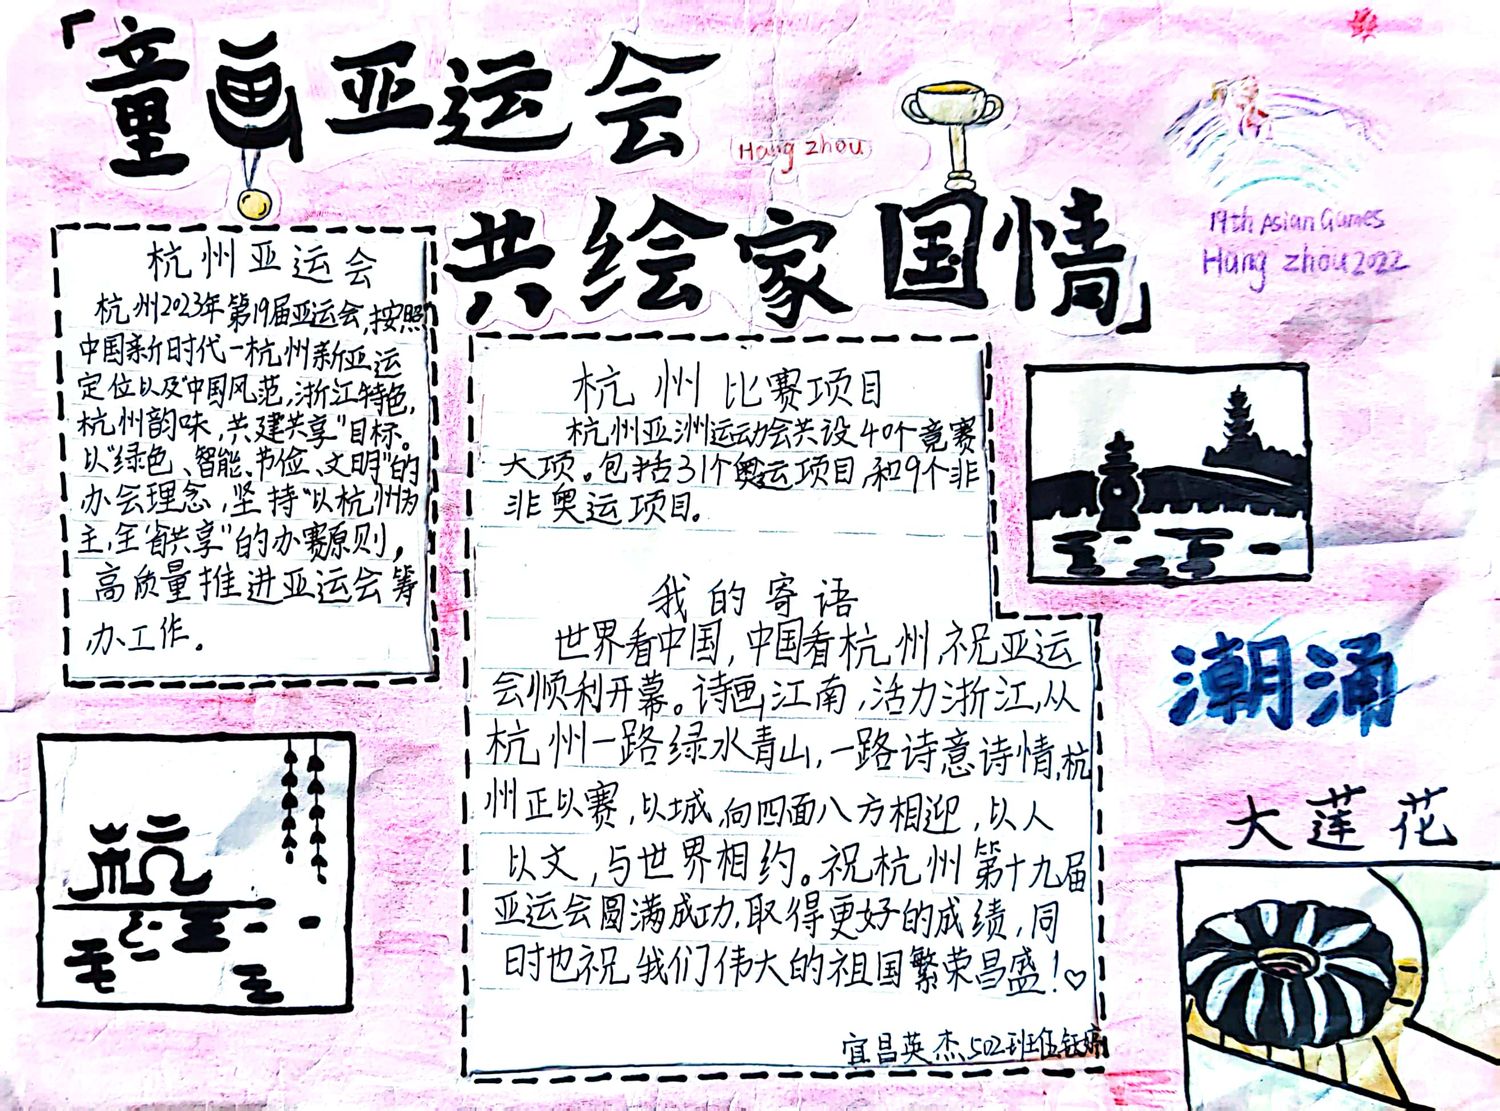 「童画亚运会
Hang zhou
共绘家国情」
19th Asian Games
Hang zhou 2022
杭州亚运会
杭州2023年第19届亚运会,按照
中国新时代—杭州新亚运
定位以及"中国风范,浙江特色,
杭州韵味,共建共享"目标。
以"绿色、智能、节俭、文明"的
办会理念,坚持"以杭州为
主,全省共享"的办赛原则,
高质量推进亚运会筹
办工作.
杭州比赛项目
杭州亚洲运动会共设40个竞赛
大项。包括31个奥运项目,和9个非
非奥运项目.
我的寄语
世界看中国,中国看杭州,祝亚运
会顺利开幕。诗画江南,活力浙江,从
杭州一路绿水青山,一路诗意诗情,杭
州正以赛,以城,向四面八方相迎,以人
以文,与世界相约。祝杭州第十九届
亚运会圆满成功,取得更好的成绩,同
时也祝我们伟大的祖国繁荣昌盛!♡
宜昌英杰502班伍
潮涌
大莲花
杭